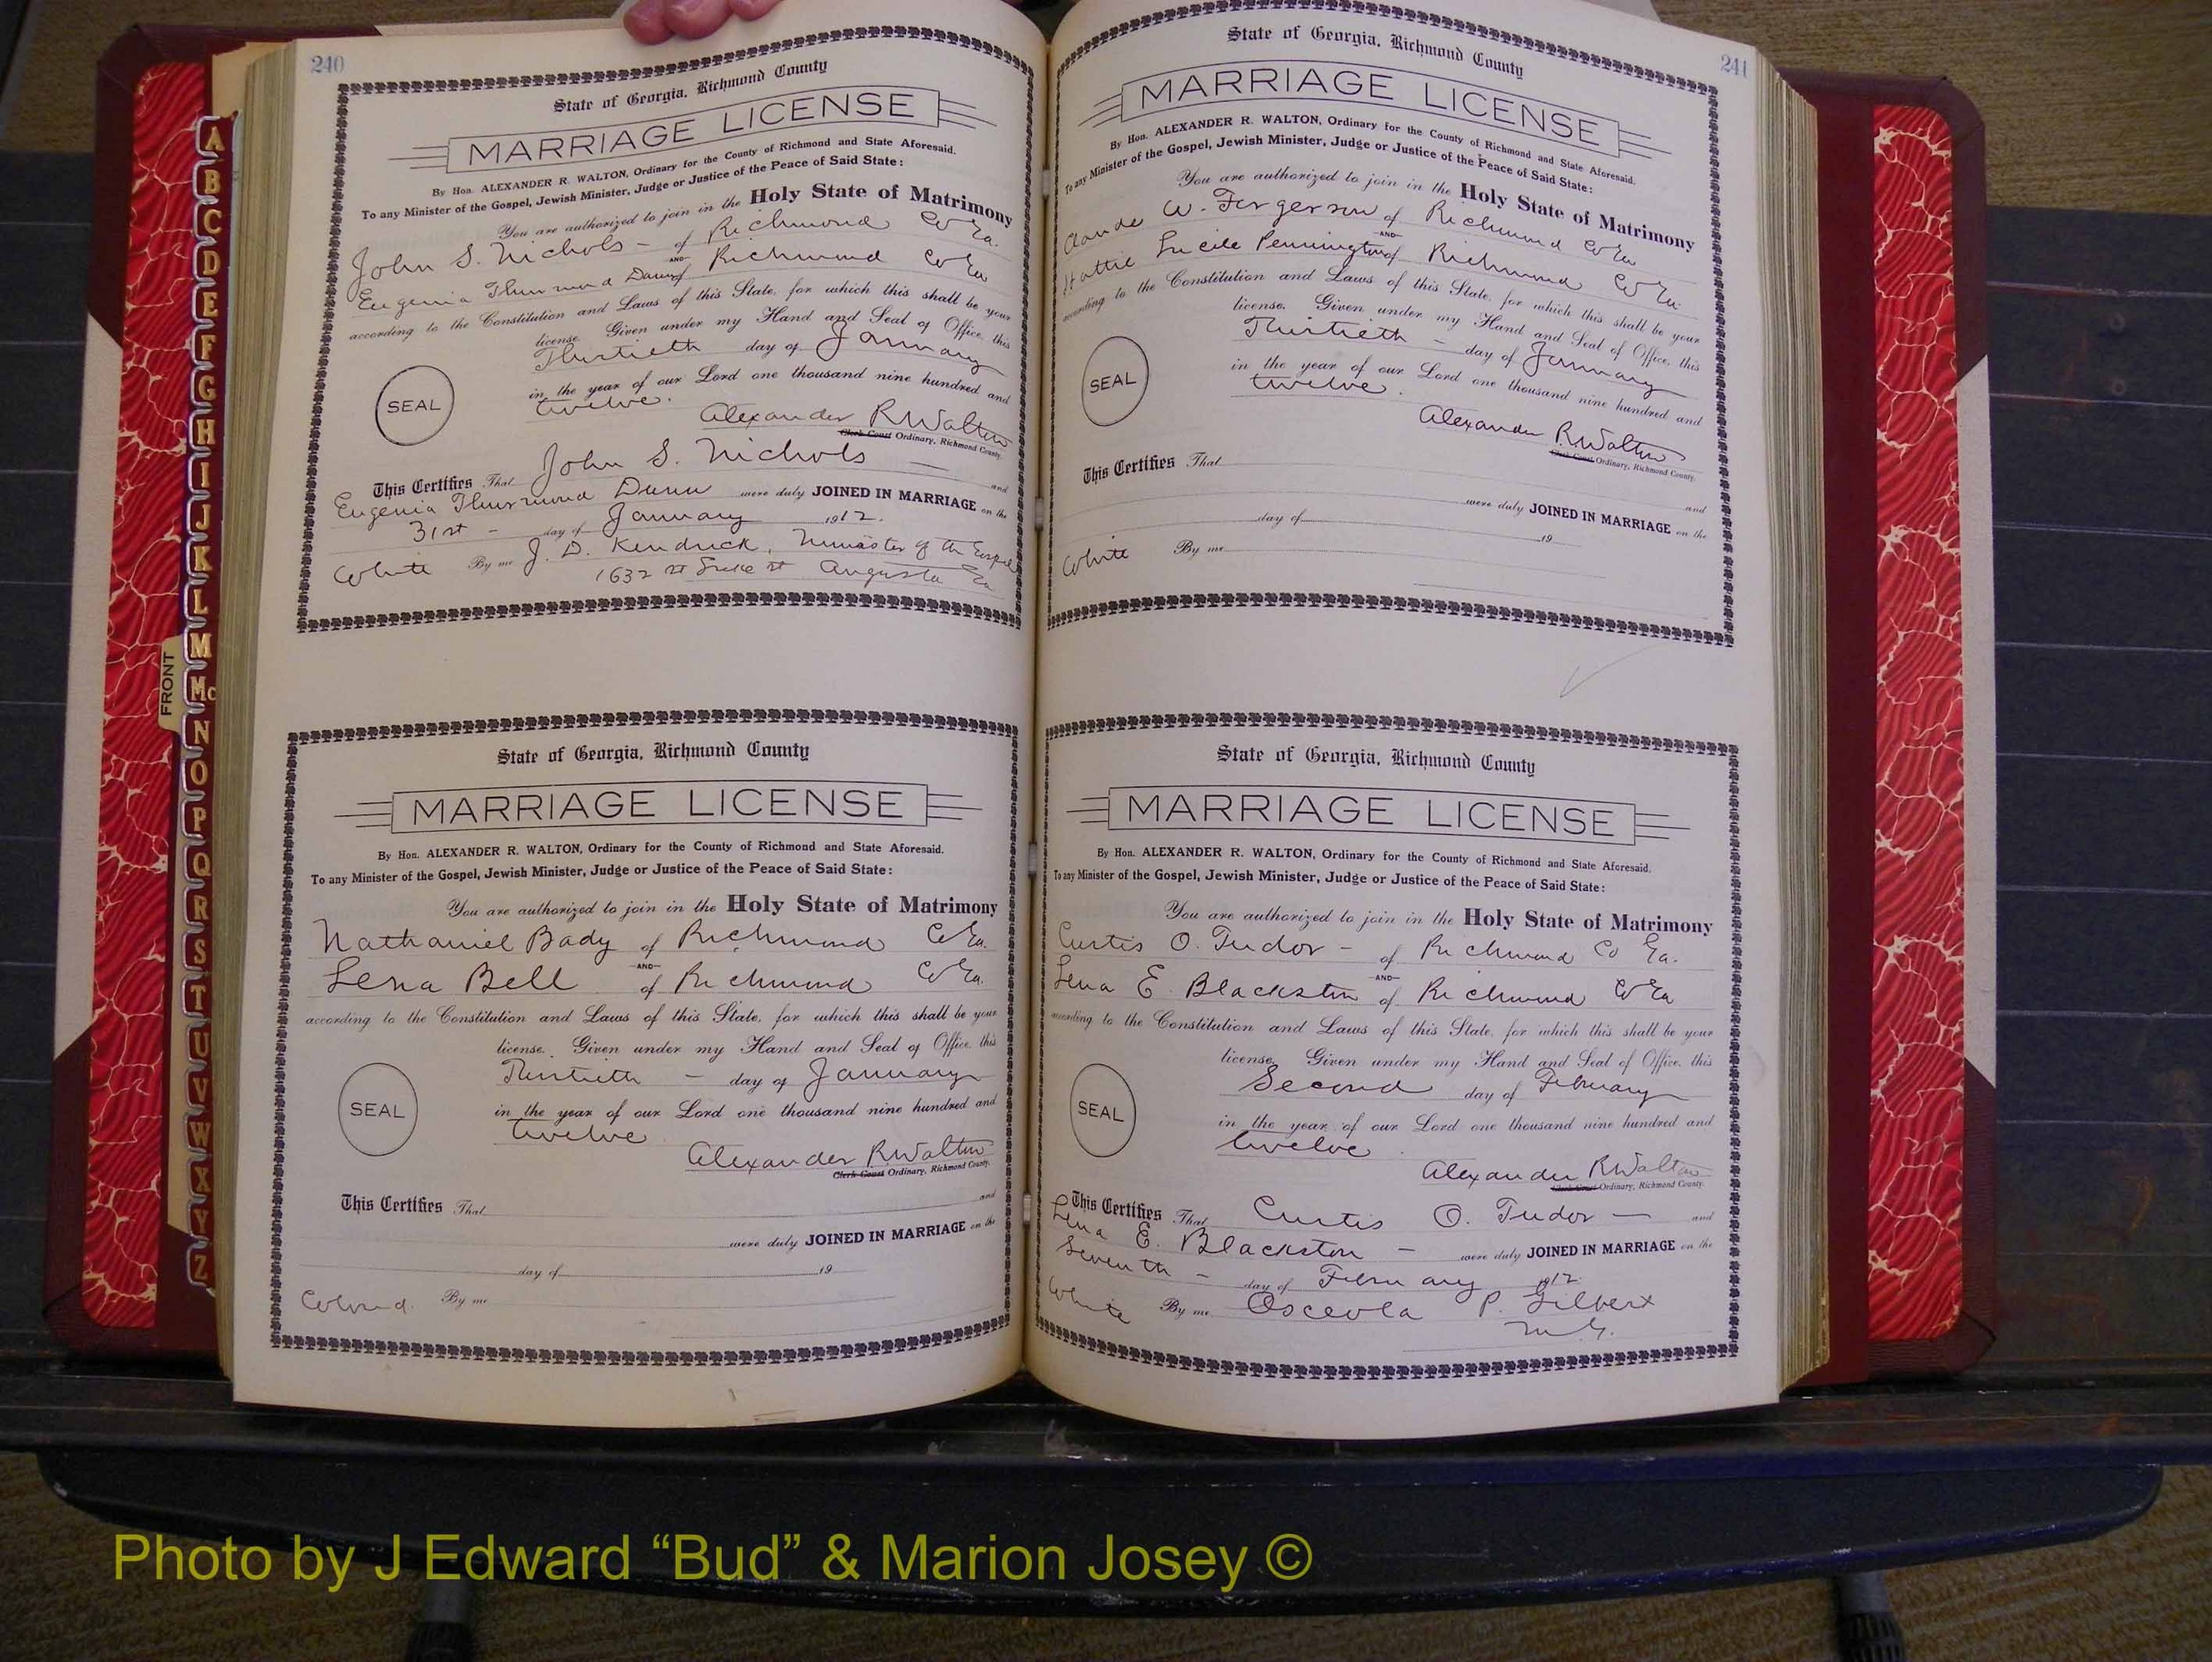 240
State of Georgia, Richmond County
MARRIAGE LICENSE
By Hon. ALEXANDER R. WALTON, Ordinary for the County of Richmond and State Aforesaid.
To any Minister of the Gospel, Jewish Minister, Judge or Justice of the Peace of Said State:
You are authorized to join in the Holy State of Matrimony
John S. Nichols - of Richmond Co Ga.
AND
Eugenia Thurmond Dunn of Richmond Co Ga
according to the Constitution and Laws of this State, for which this shall be your
license. Given under my Hand and Seal of Office, this
Thirtieth day of January
in the year of our Lord one thousand nine hundred and
twelve.
SEAL
Alexander R Walton
Clerk Court Ordinary, Richmond County.
This Certifies That John S. Nichols — and
Eugenia Thurmond Dunn were duly JOINED IN MARRIAGE on the
31st - day of January 1912.
White By me J. D. Kendrick, Minister of the Gospel
1632 Augusta Ga
State of Georgia, Richmond County
MARRIAGE LICENSE
By Hon. ALEXANDER R. WALTON, Ordinary for the County of Richmond and State Aforesaid.
To any Minister of the Gospel, Jewish Minister, Judge or Justice of the Peace of Said State:
You are authorized to join in the Holy State of Matrimony
Nathaniel Bady of Richmond Co Ga.
AND
Lena Bell of Richmond Co Ga.
according to the Constitution and Laws of this State, for which this shall be your
license. Given under my Hand and Seal of Office, this
Thirtieth - day of January
in the year of our Lord one thousand nine hundred and
twelve
SEAL
Alexander R Walton
Clerk Court Ordinary, Richmond County.
This Certifies That and
were duly JOINED IN MARRIAGE on the
day of 19
Colored. By me
241
State of Georgia, Richmond County
MARRIAGE LICENSE
By Hon. ALEXANDER R. WALTON, Ordinary for the County of Richmond and State Aforesaid.
To any Minister of the Gospel, Jewish Minister, Judge or Justice of the Peace of Said State:
You are authorized to join in the Holy State of Matrimony
Claude W. Fergerson of Richmond Co Ga
AND
Hattie Lucile Pennington of Richmond Co Ga
according to the Constitution and Laws of this State, for which this shall be your
license. Given under my Hand and Seal of Office, this
Thirtieth - day of January
in the year of our Lord one thousand nine hundred and
twelve.
SEAL
Alexander R Walton
Clerk Court Ordinary, Richmond County.
This Certifies That and
were duly JOINED IN MARRIAGE on the
day of 19
White By me
State of Georgia, Richmond County
MARRIAGE LICENSE
By Hon. ALEXANDER R. WALTON, Ordinary for the County of Richmond and State Aforesaid.
To any Minister of the Gospel, Jewish Minister, Judge or Justice of the Peace of Said State:
You are authorized to join in the Holy State of Matrimony
Curtis O. Tudor - of Richmond Co Ga.
AND
Lena E. Blackston of Richmond Co Ga
according to the Constitution and Laws of this State, for which this shall be your
license. Given under my Hand and Seal of Office, this
Second day of February
in the year of our Lord one thousand nine hundred and
twelve.
SEAL
Alexander R Walton
Clerk Court Ordinary, Richmond County.
This Certifies That Curtis O. Tudor — and
Lena E. Blackston - were duly JOINED IN MARRIAGE on the
Seventh - day of February 1912
White By me Osceola P. Gilbert
M. G.
A
B
C
D
E
F
G
H
I
J
K
L
M
Mc
N
O
P
Q
R
S
T
U
V
W
X
Y
Z
FRONT
Photo by J Edward “Bud” & Marion Josey ©